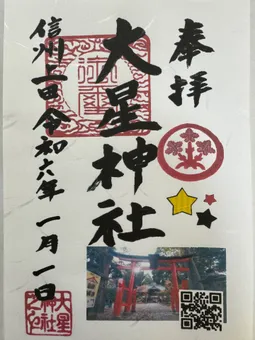 奉拝
大星神社
信州上田令和六年一月一日
大星
神社
之印